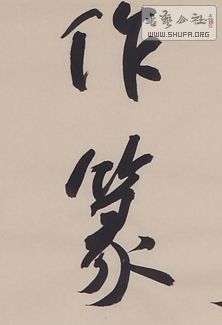 作篆
书艺公社
www.shufa.org